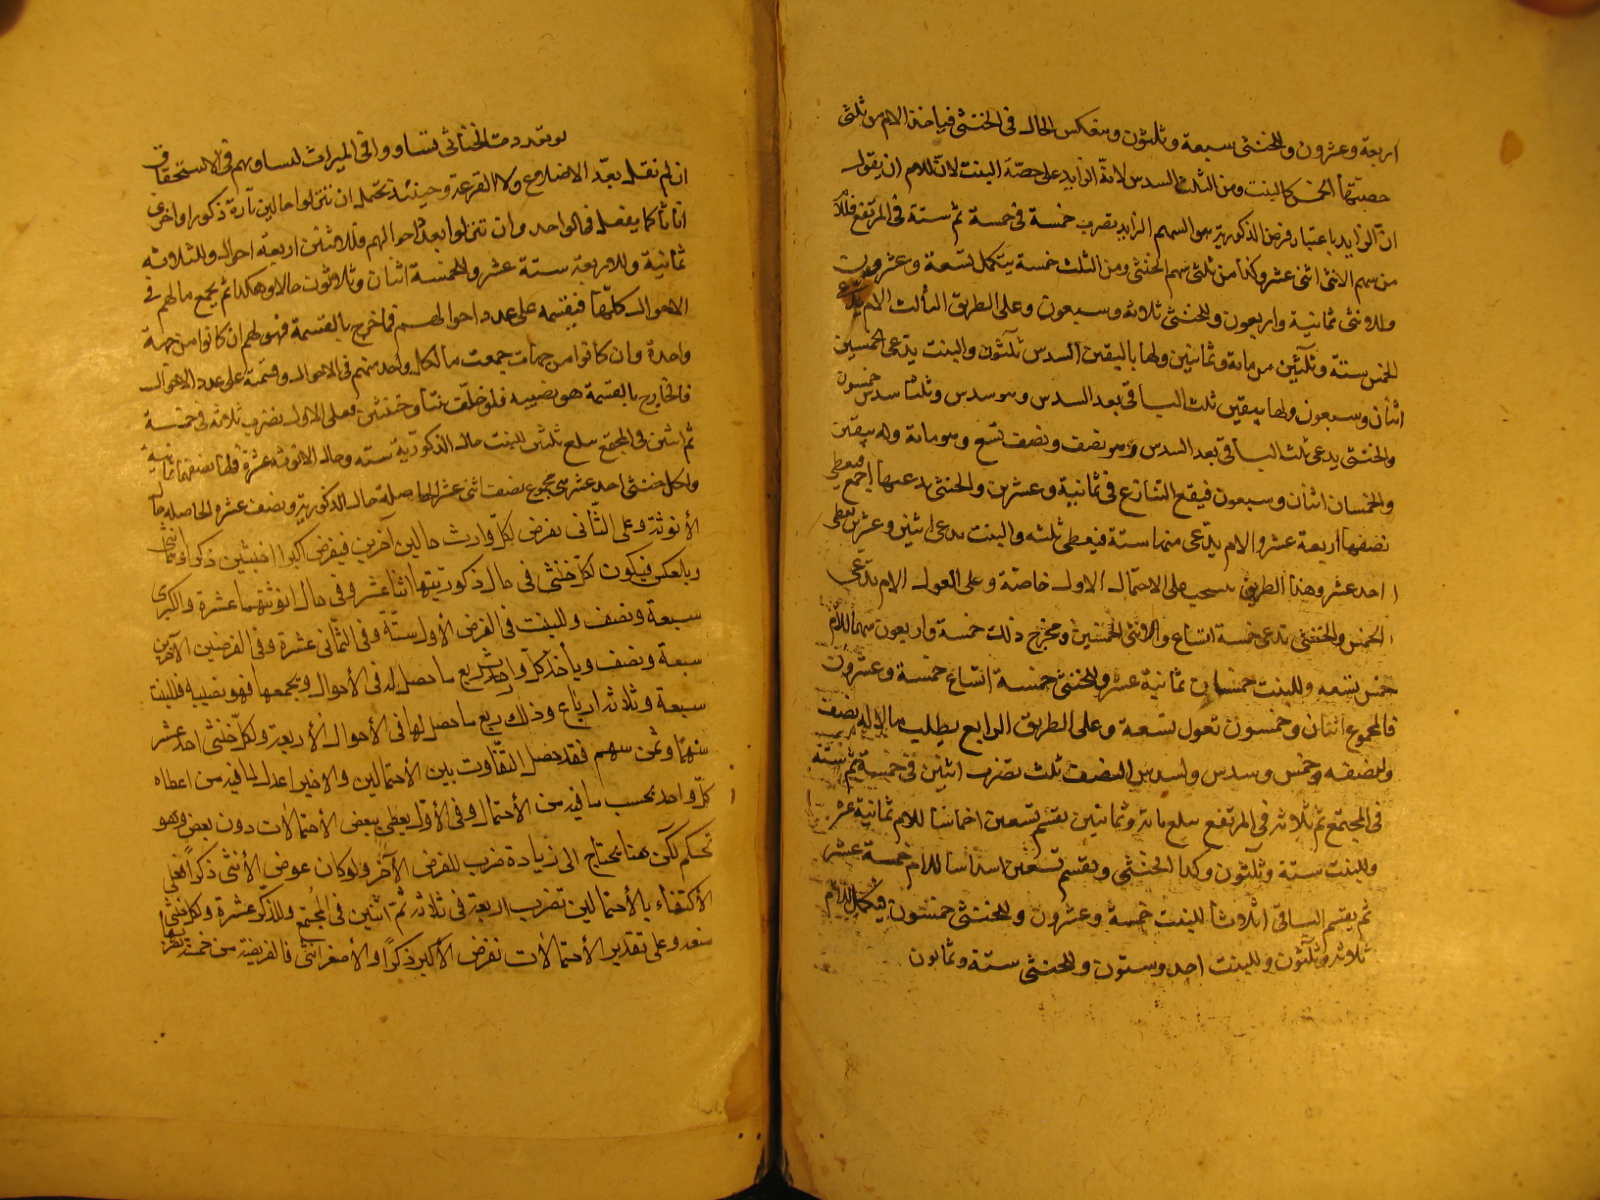 اربعة وعشرون وللخنثى سبعة وثلثون وينعكس الحال فى الخنثى فياخذ الام من ثلثى
حصتها الخمس كالبنت ومن الثلث السدس لانه الزايد على حصة البنت لان للام ان يقول
ان الزايد باعتبار فرض الذكورية هو السهم الزايد يضرب خمسة فى خمسة ثم ستة فى المرتفع فللام
من سهم الانثى اثنى عشر وكذا من ثلثى سهم الخنثى ومن الثلث خمسة يتكمل تسعة وعشرون
وللانثى ثمانية واربعون وللخنثى ثلاثة وسبعون وعلى الطريق الثالث الام تدعى
الخمس ستة وثلثين من ماية وثمانين ولها باليقين السدس ثلثون والبنت يدعى الخمسين
اثنان وسبعون ولها بيقين ثلث الباقى بعد السدس وهو سدس وثلثا سدس خمسون
والخنثى يدعى ثلث الباقى بعد السدس وهو نصف ونصف تسع وهو ماية وله بيقين
والخمسان اثنان وسبعون فيقع التنازع فى ثمانية وعشرين والخنثى يدعيها اجمع فيعطى
نصفها اربعة عشر والام يدعى منها ستة فيعطى ثلثه والبنت يدعى اثنين وعشرين تعطى
احد عشر وهذا الطريق ينسحب على الاحتمال الاول خاصة وعلى العول الام تدعى
الخمس والخنثى تدعى خمسة اتساع والانثى الخمسين ومخرج ذلك خمسة واربعون سهما للام
خمس تسعه وللبنت خمسان ثمانية عشر وللخنثى خمسة اتساع خمسة وعشرون
فالمجموع اثنان وخمسون تعول بسبعة وعلى الطريق الرابع يطلب مالا له نصف
ولنصفه وخمس وسدس ولسدس النصف ثلث تضرب اثنين فى خمسة ثم ستة
فى المجتمع ثم ثلاثة فى المرتفع سلغ مائة وثمانين يقسم تسعين اخماسا للام ثمانية عشر
وللبنت ستة وثلثون وكذا الخنثى ويقسم تسعين اسداسا للام خمسة عشر
ثم يقسم الباقى اثلاثا للبنت خمسة وعشرون وللخنثى خمسون فيكمل للام
ثلاثة وثلثون وللبنت احد وستون وللخنثى ستة وثمانون
لو تعددت الخناثى تساووا فى الميراث لتساويهم فى الاستحقاق
ان لم نقل بعد الاضلاع ولا القرعة وحينئذ يحتمل ان يتنزلوا حالين تارة ذكورا واخرى
اناثا كما يفعل فى الواحد وان تنزلوا بعدد احوالهم فللاثنين اربعة احوال وللثلاثة
ثمانية وللاربعة ستة عشر وللخمسة اثنان وثلاثون حالا وهكذا ثم يجمع ما لهم فى
الاحوال كلها فيقسمه على عدد احوالهم فما خرج بالقسمة فهو لهم ان كانوا من جهة
واحدة وان كانوا من جهات جمعت ما لكل واحد منهم فى الاحوال وقسمته على عدد الاحوال
فالخارج بالقسمة هو نصيبه فلو خلف بنتا وخنثيين فعلى الاول يضرب ثلاثة فى خمسة
ثم اثنين فى المجتمع سلغ ثلثين للبنت حال الذكورية ستة وحال الانوثة عشرة فلها نصفهما ثمانية
ولكل خنثى احد عشر هى مجموع نصف اثنى عشر الحاصلة حال الذكورية ونصف عشرة الحاصلة حال
الأنوثة وعلى الثانى نفرض لكل وارث حالين آخرين فيفرض اكبر الخنثيين ذكرا
وبالعكس فيكون لكل خنثى فى حال ذكوريتها اثنا عشر وفى حال انوثتهما عشرة وللكبرى
سبعة ونصف وللبنت فى الفرض الأول ستة وفى الثانى عشرة وفى الفرضين الآخرين
سبعة ونصف ويأخذ كل واحد ربع ما حصل له فى الأحوال ويجمعها فهو نصيبه فللبنت
سبعة وثلاثة ارباع وذلك ربع ما حصل لها فى الأحوال الأربعة ولكل خنثى احد عشر
سهما وثمن سهم فقد حصل التفاوت بين الأحتمالين والاخير اعدل لما فيه من اعطاء
كل واحد بحسب ما فيه من الأحتمال وفى الأول يعطى ببعض الأحتمالات دون بعض وهو
تحكم لكن هنا يحتاج الى زيادة ضرب للفرض الآخر ولو كان عوض الأنثى ذكرا فعلى
الأكتفاء بالأحتمالين تضرب اربعة فى ثلاثة ثم اثنين فى المجتمع وللذكر عشرة ولكل خنثى
سبعة وعلى تقدير الأحتمالات نفرض الأكبر ذكرا والأصغر انثى فالفريضة من خمسة